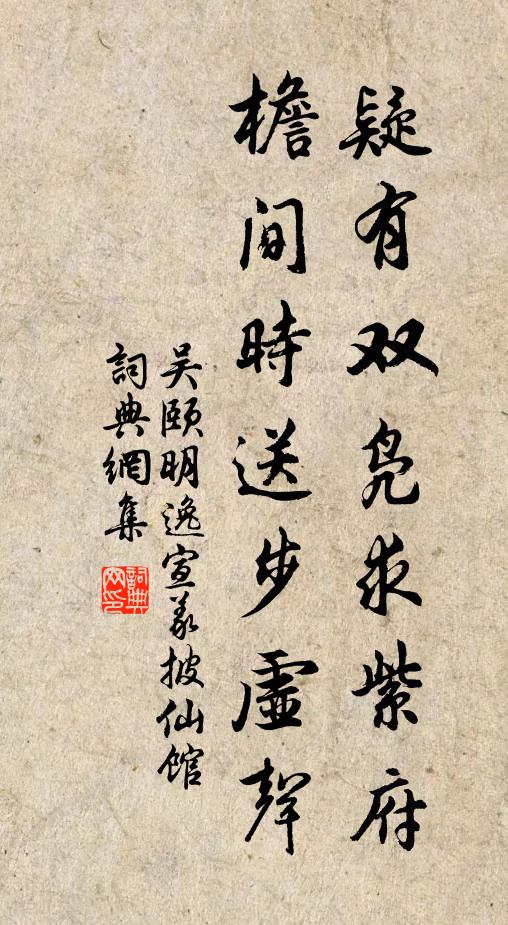 疑有双凫来紫府
檐间時送步虛聲
吴颐明逸宣义披仙馆
詞典網集
詞典